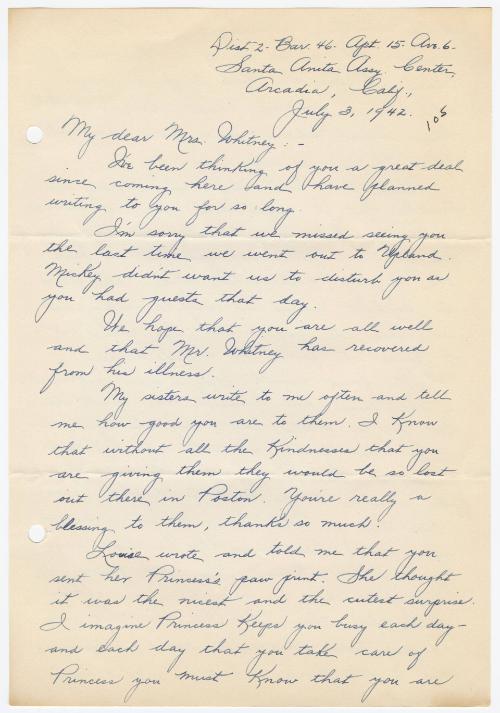 Dist. 2 - Bar. 46 - Apt. 15 - Ave. 6 -
Santa Anita Assy. Center,
Arcadia, Calif.,
July 3, 1942.
106
My dear Mrs. Whitney: -
I've been thinking of you a great deal
since coming here and have planned
writing to you for so long.
I'm sorry that we missed seeing you
the last time we went out to Upland.
Mickey didn't want us to disturb you as
you had guests that day.
We hope that you are all well
and that Mr. Whitney has recovered
from his illness.
My sisters write to me often and tell
me how good you are to them. I know
that without all the kindnesses that you
are giving them they would be so lost
out there in Poston. You're really a
blessing to them, thanks so much.
Louise wrote and told me that you
sent her Princess's paw print. She thought
it was the nicest and the cutest surprise.
I imagine Princess keeps you busy each day -
and each day that you take care of
Princess you must know that you are